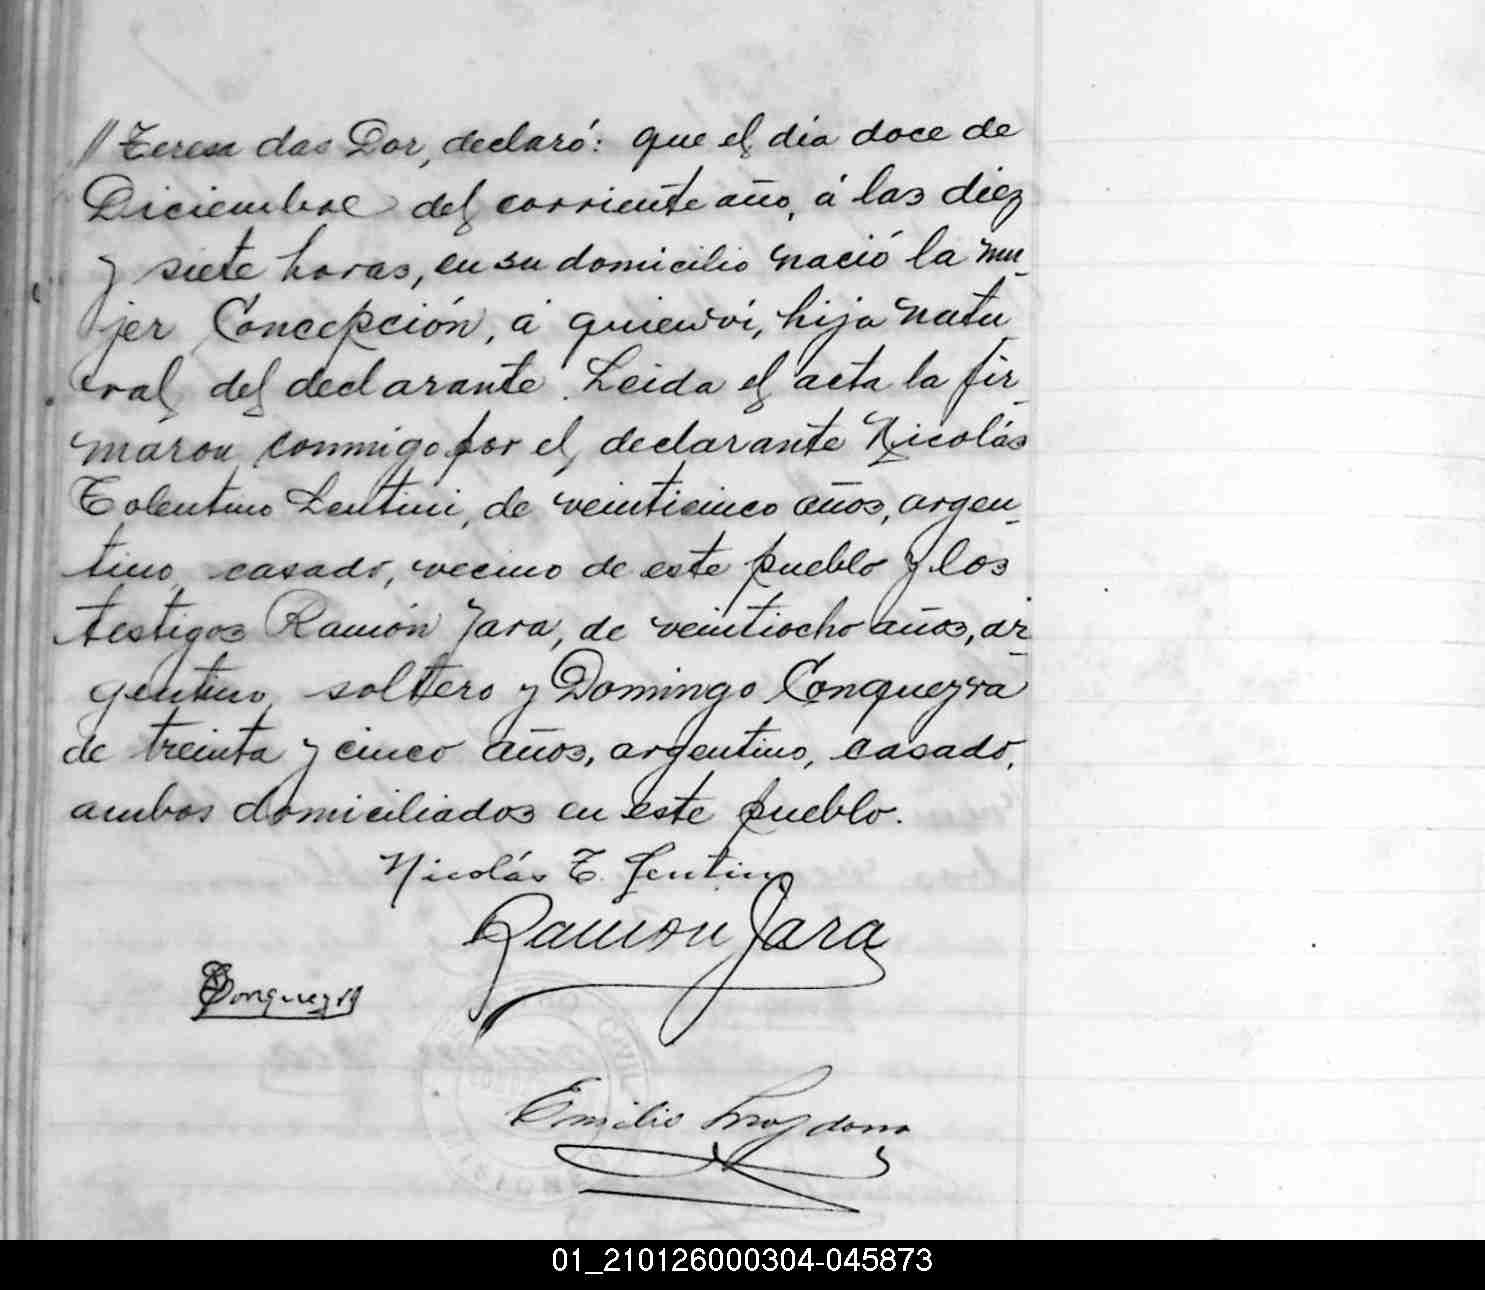 // Teresa das Dor, declaró: que el dia doce de
Diciembre del corriente año, á las diez
y siete horas, en su domicilio nació la mu-
jer Concepción, á quien ví, hija natu
ral del declarante. Leida el acta la fir-
máron conmigo por el declarante Nicolás
Tolentino Lentini, de veinticinco años, argen-
tino, casado, vecino de este pueblo y los
testigos Ramón Jara, de veintiocho años, ar-
gentino, soltero y Domingo Conqueyra
de treinta y cinco años, argentino, casado,
ambos domiciliados en este pueblo.
Nicolás T. Lentini
Ramon Jara
DConqueyra
Emilio
01_210126000304-045873